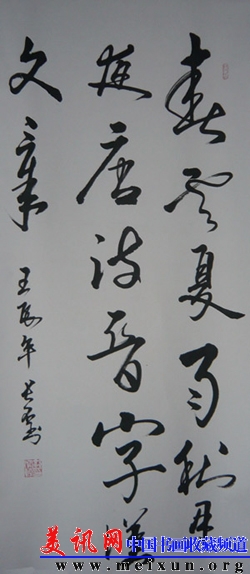 春云夏雨秋月
夜唐诗晋字汉
文章
壬辰年 长云书
美讯网 中国书画收藏频道
www.meixun.org